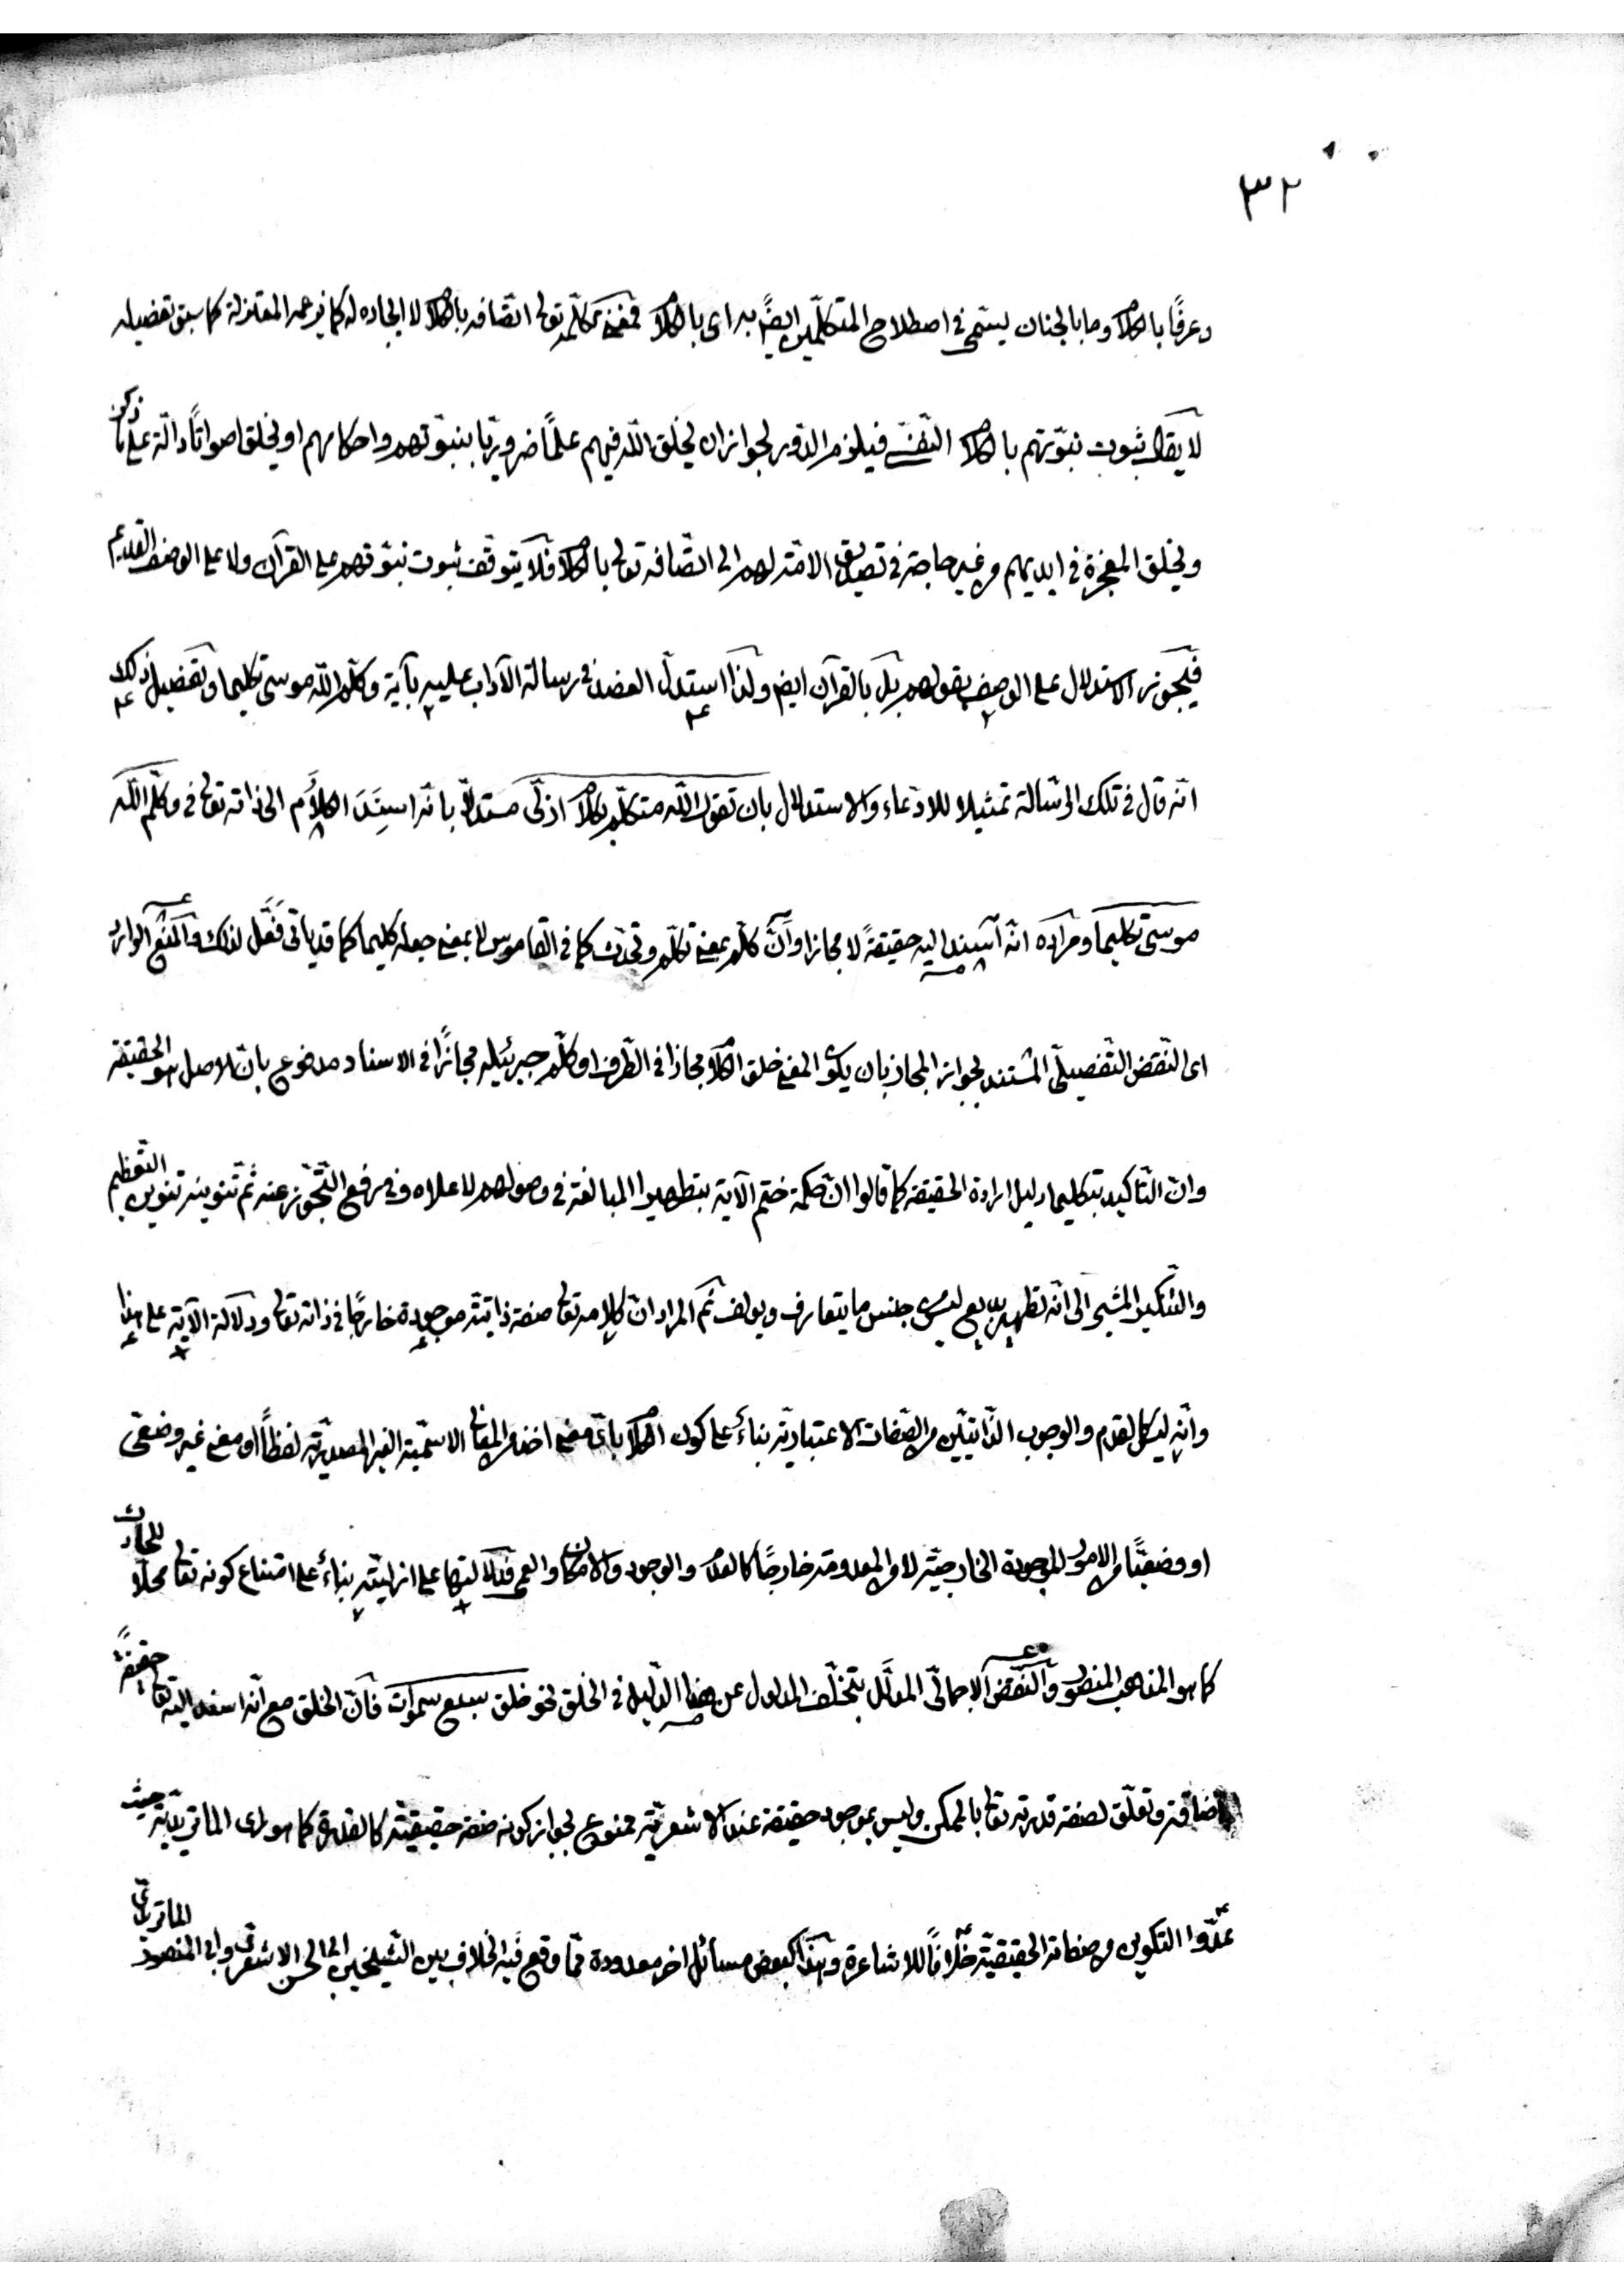 ٣٢
وعرفًا بالكلام وما بالجنان يسمّى في اصطلاح المتكلّمين ايضًا به اى بالكلام فمعنى تكلّمه تعالى اتّصافه بالكلام لا ايجاده له كما يزعمه المعتزلة كما سبق تفصيله
لا يقال ثبوت نبوّتهم بالكلام النفسى فيلزم الدّور لجواز ان يخلق الله فيهم علمًا ضروريًّا بنبوّتهم واحكامهم او يخلق اصواتًا دالّة على ما ذكر
ويخلق المعجزة في ايديهم من غير حاجة في تصديق الامّة لهم الى اتّصافه تعالى بالكلام فلا يتوقّف ثبوت نبوّتهم على القرآن ولا على الوصف القديم
فيجوز الاستدلال على الوصف بقولهم بل بالقرآن ايضا ولذا استدلّ العضد في رسالة الآداب عليه بآية وكلّم الله موسى تكليما وتفصيل ذلك
انّه قال في تلك الرّسالة تمثيلا للادّعاء والاستدلال بان تقول الله متكلّم بكلام ازلّى مستدلّا بانّه اسند الكلام الى ذاته تعالى في وكلّم الله
موسى تكليما ومراده انّه اسند اليه حقيقةً لا مجازا وانّ كلّم بمعنى تكلّم وتحدّث كما في القاموس لا بمعنى جعله كليما كما قد يأتى فعّل لذلك والمنع الوارد
اى النّقض التّفصيلىّ المستند بجواز المجاز بان يكون المعنى خلق الكلام مجازا في الظّرف او كلّم جبرئيله مجازًا في الاسناد مدفوع بانّ الاصل هو الحقيقة
وانّ التّأكيد بتكليما دليل ارادة الحقيقة كما قالوا انّ حكمة ختم الآية بتطهيرا المبالغة في وصولهم لاعلاه وفي رفع التّجوّز عنه ثمّ تنوينه تنوين التّعظيم
والتّنكير المشير الى انّه تطهير بديع ليس من جنس ما يتعارف ويولف ثم المراد انّ كلامه تعالى صفة ذاتيّة موجودة خارجًا في ذاته تعالى ودلالة الآية على هذا
وانّه ليس كالقدم والوجوب الذّاتيّين من الصّفات الاعتباريّة بناءً على كون الكلام باىّ معنى اخذ من المعانى الاسميّة الغير المصدريّة لفظًا او معنى غير وضعىّ
او وضعيًّا من الامور الموجودة الخارجيّة لا من المعدومة خارجًا كالقدم والوجود والامكان والعمى فدلالتها على ازليّته بناءً على امتناع كونه تعالى محلّا للحوادث
كما هو المذهب المنصور والنّقض الاجمالىّ المعلّل بتخلّف المدلول عن هذا الدّليل في الخلق نحو خلق سبع سموات فانّ الخلق مع انّه اسند اليه تعالى حقيقةً
اضافة وتعلّق لصفة قدرته تعالى بالممكن وليس بموجود حقيقة عند الاشعريّة ممنوع لجواز كونه صفة حقيقيّة كالقدرة كما هو لدى الماتريديّة حيث
عدّوا التكوين من صفاته الحقيقيّة خلافًا للاشاعرة وهذا كبعض مسائل اخر معدودة ممّا وقع فيه الخلاف بين الشّيخين ابى الحسن الاشعرى وابى المنصور الماتريدىّ